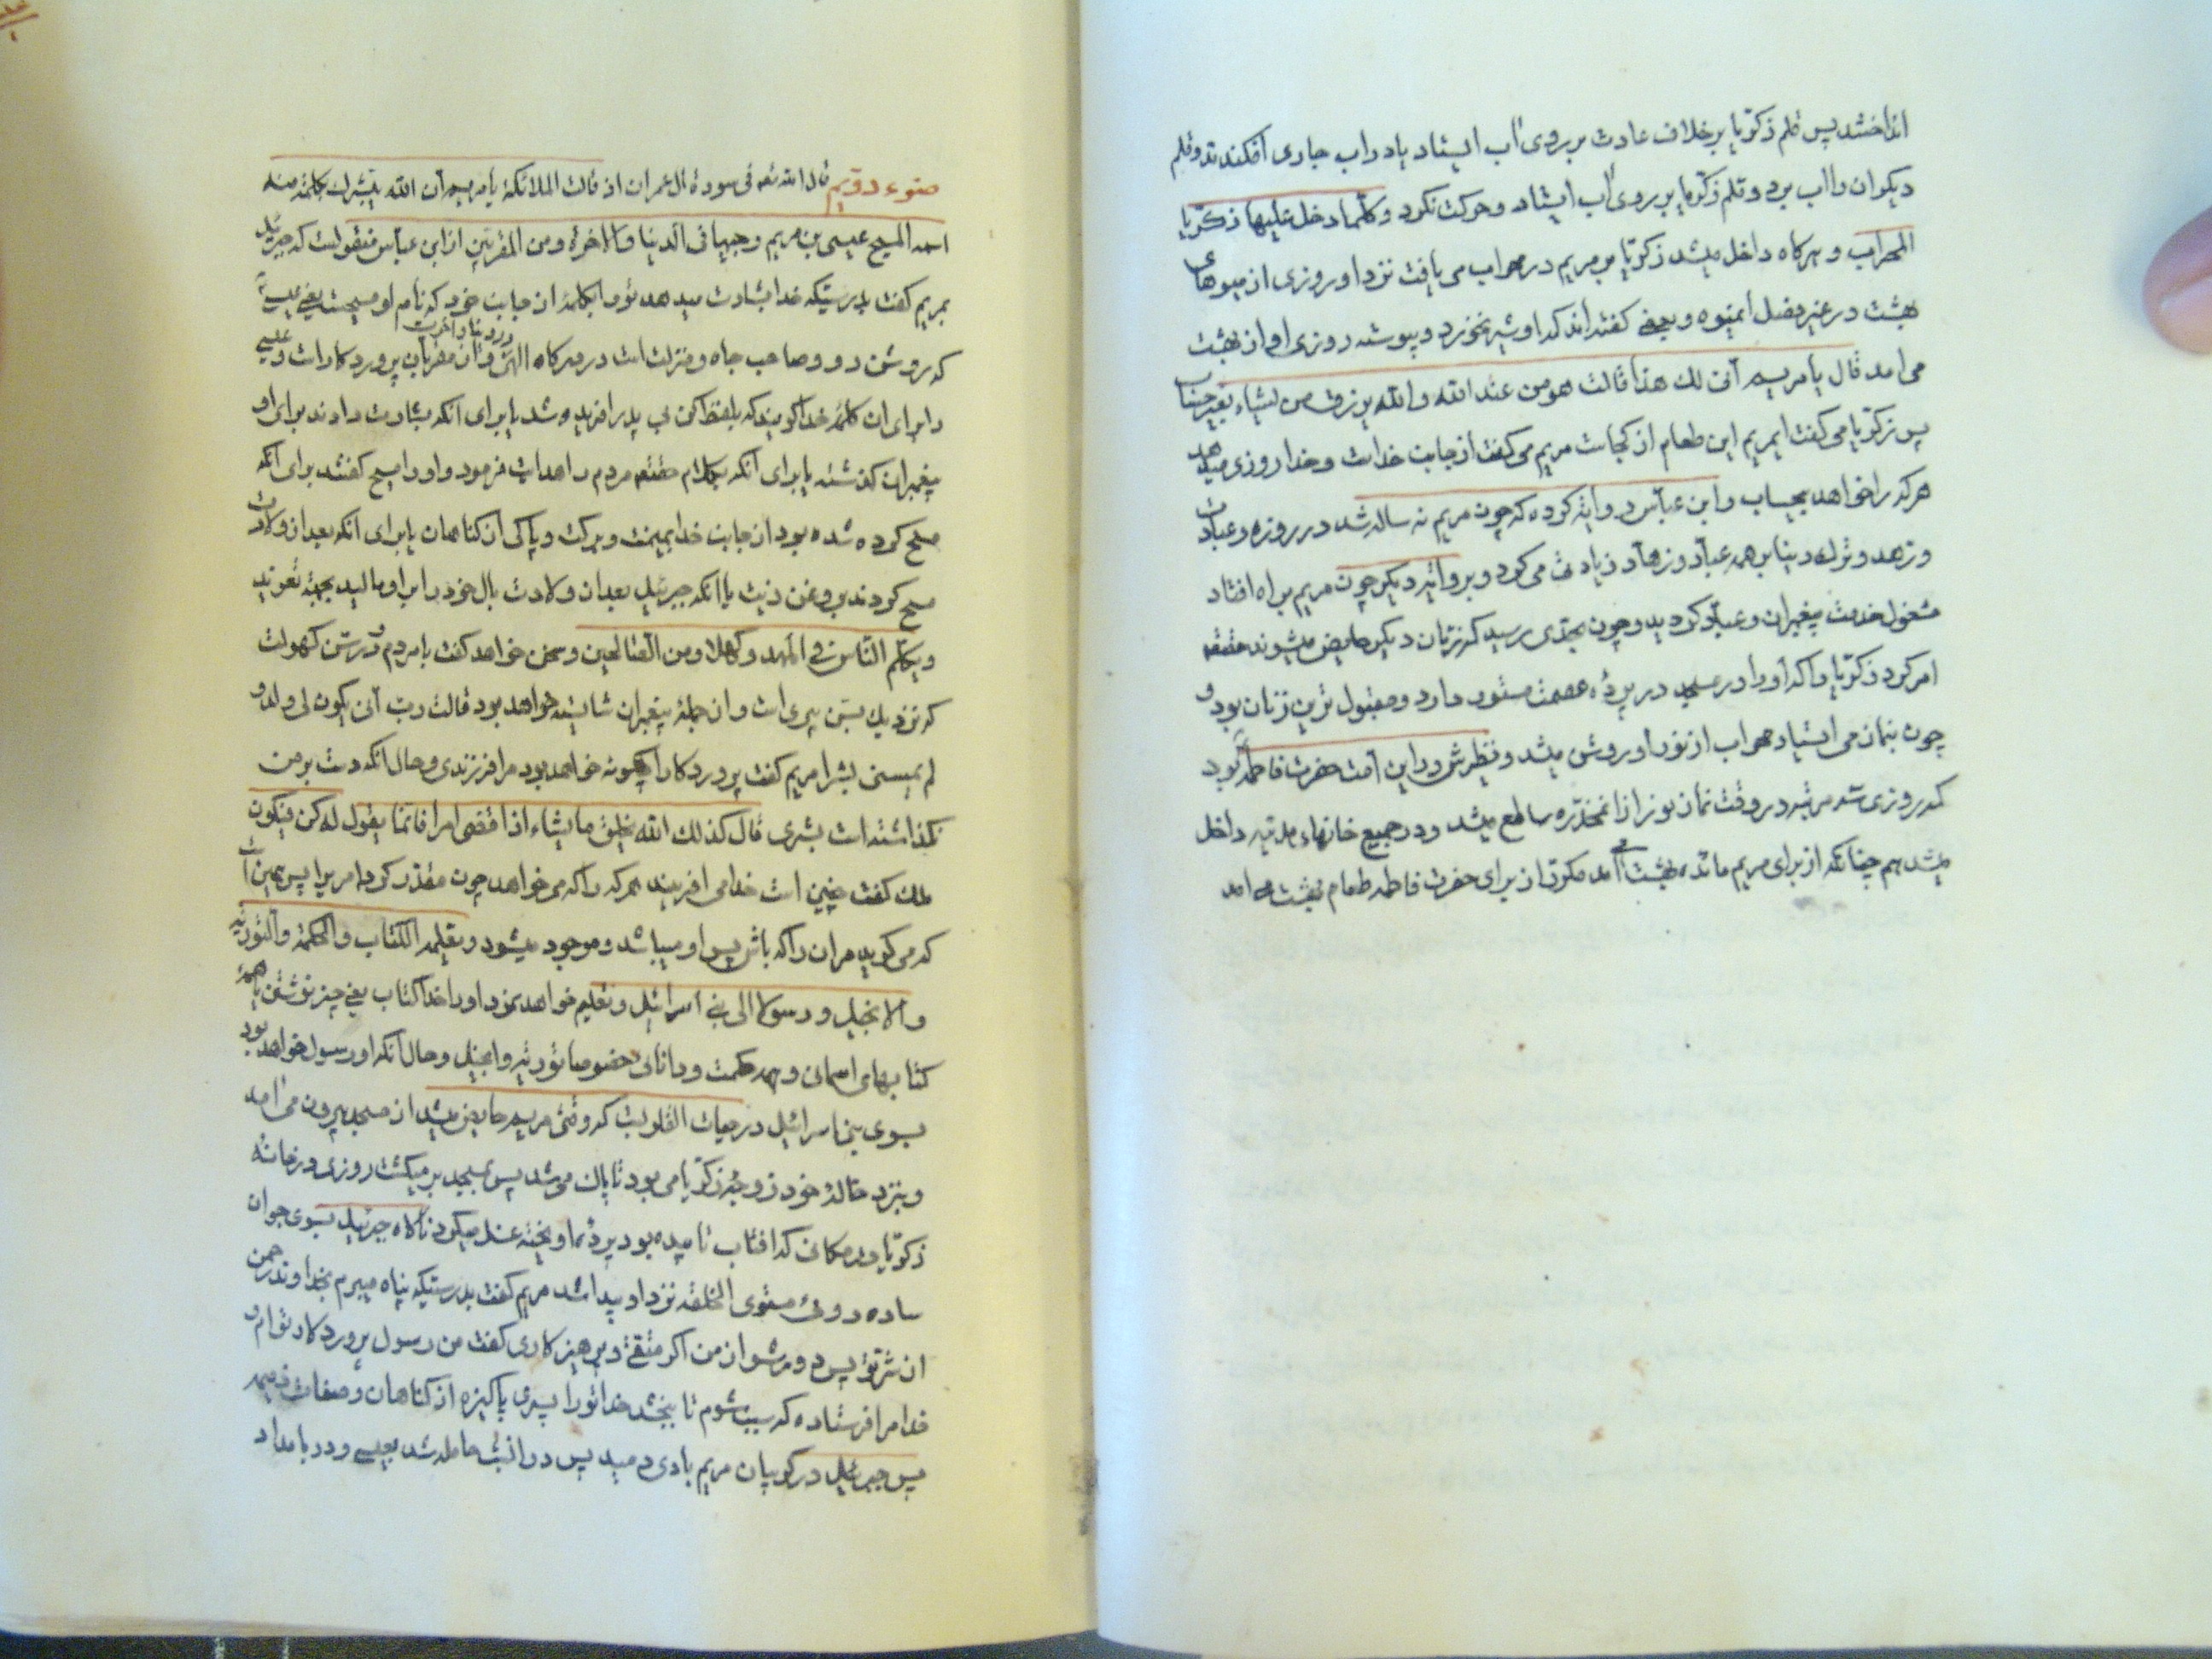 انداختند پس قلم زکریا بر خلاف عادت بر روی آب ایستاد یا در آب جاری افکندند و قلم
دیکران را آب برد و قلم زکریا بر روی آب ایستاد و حرکت نکرد وکلما دخل علیها زکریا
المحراب و هرکاه داخل میشد زکریا بر مریم در محراب می یافت نزد او روزی از میوهای
بهشت در غیر فصل انمیوه و بعضی کفته اند که او شیر نخورد و پیوسته روزی او از بهشت
می امد قال یا مریم انی لك هذا قالت هو من عند الله والله یرزق من یشاء بغیر حساب
پس زکریا می کفت ایمریم این طعام از کجاست مریم می کفت از جانب خداست و خدا روزی میدهد
هر که را خواهد بیحساب و ابن عباس روایة کرده که چون مریم نه ساله شد در روزه و عبادت
و زهد و ترك دنیا بر همه عباد و زهاد زیادتی می کرد و بروایة دیکر چون مریم براه افتاد
مشغول خدمت پیغمبران و عباد کردید و چون بحدی رسید که زنان دیکر حایض میشوند حقتعه
امر کرد زکریا را که او را در مسجد در پرده عصمت مستور دارد و مقبول ترین زنان بود و
چون بنماز می ایستاد محراب از نور او روشن میشد و نظیرش در این امت حضرت فاطمه بود
که روزی سه مرتبه در وقت نماز نور از انمخدره ساطع میشد و در جمیع خانهاء مدینه داخل
میشد هم چنانکه از برای مریم مائده بهشت می آمد مکرر از برای حضرت فاطمه طعام بهشت می امد
ضوء دویم قال الله تعه فی سورة ال عمران اذ قالت الملائکة یا مریم ان الله یبشرك بکلمة منه
اسمه المسیح عیسی بن مریم وجیها فی الدنیا والاخرة ومن المقربین از ابن عباس منقولست که جبرئیل
بمریم کفت بدرستیکه خدا بشارت میدهد تو را بکلمة از جانب خود که نام او مسیحست یعنی عیسی
که روشن رو و صاحب جاه و منزلت است در درکاه الهی در دنیا و اخرت و از مقربان پروردکار است و عیسی
را برای ان کلمه خدا کویند که بلفظ کن بی پدر افریده شد یا برای انکه بشارت دادند برای او
پیغمبران کذشته یا برای انکه بکلام حقتعه مردم را هدایت فرمود و او را مسیح کفتند برای انکه
مسح کرده شده بود از جانب خدا بمیمنت و برکت و پاکی از کناهان یا برای انکه بعد از ولادت
مسح کردند بروغن زیت یا انکه جبرئیل بعد از ولادت بال خود را بر او مالید بجهة تعوید
ویکلم الناس فی المهد وکهلا ومن الصالحین و سخن خواهد کفت با مردم در سن کهولت
که نزدیك بسن پیری است و از جملۀ پیغمبران شایسته خواهد بود قالت رب انی یکون لی ولد و
لم یمسسنی بشرا مریم کفت پروردکارا چکونه خواهد بود مرا فرزندی و حال انکه دست بر من
نکذاشته است بشری قال کذلك الله یخلق ما یشاء اذا قضی امرا فانما یقول له کن فیکون
ملك کفت چنین است خدا می افریند هر که را که می خواهد چون مقدر کرد امری را پس همین است
که می کوید مر ان را که باش پس او میباشد و موجود میشود ویعلمه الکتاب والحکمة والتوریة
والانجیل ورسولا الی بنی اسرائیل و تعلیم خواهد نمود او را خدا کتاب یعنی چیز نوشتن یا همۀ
کتابهای اسمانی و همه حکمت و دانائی خصوصا توریة و انجیل و حال انکه او رسول خواهد بود
بسوی بنی اسرائیل در حیات القلوبست که وقتی مریم حایض میشد از مسجد بیرون می امد
و بنزد خالۀ خود زوجۀ زکریا می بود تا پاك می شد پس بمسجد بر میکشت روزی در خانه
زکریا در مکانی که افتاب تابیده بود پرده اویخته غسل میکرد ناکاه جبرئیل بسوی جوان
ساده روئی مستوی الخلقه نزد او پیدا شد مریم کفت بدرستیکه پناه میبرم بخداوند رحمن
از شر تو پس دور شو از من اکر متقی و پرهیزکاری کفت من رسول پروردکار توام و
خدا مرا فرستاده که سبب شوم تا ببخشد خدا تو را پسری پاکیزه از کناهان و صفات ذمیمه
پس جبرئیل در کریبان مریم بادی دمید پس در انشب حامله شد بعیسی و در بامداد